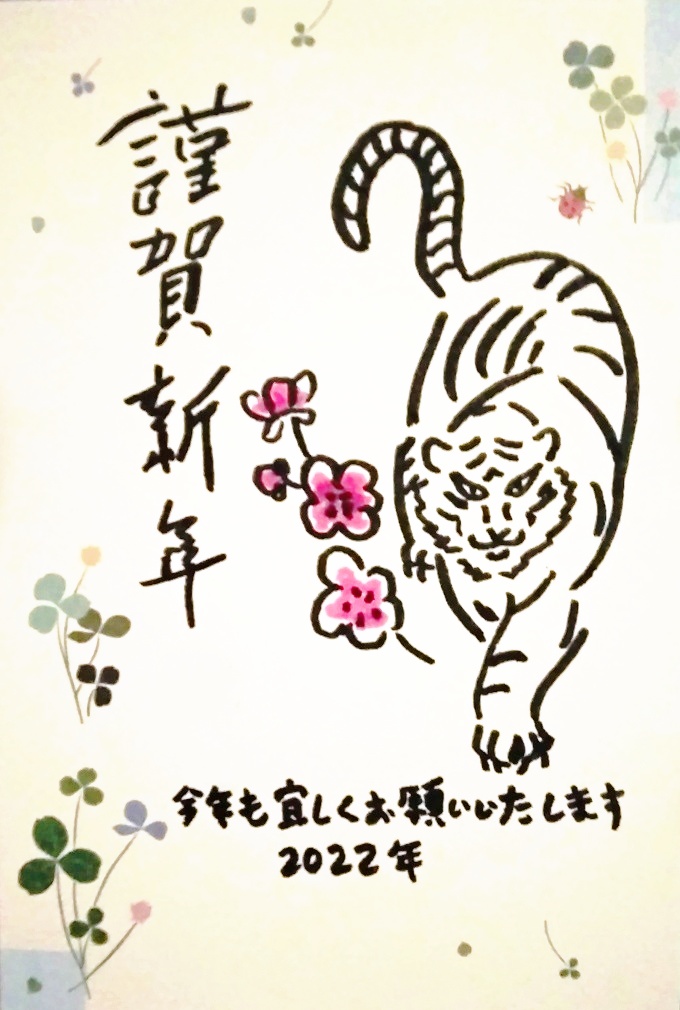 謹賀新年
今年も宜しくお願いいたします
2022年